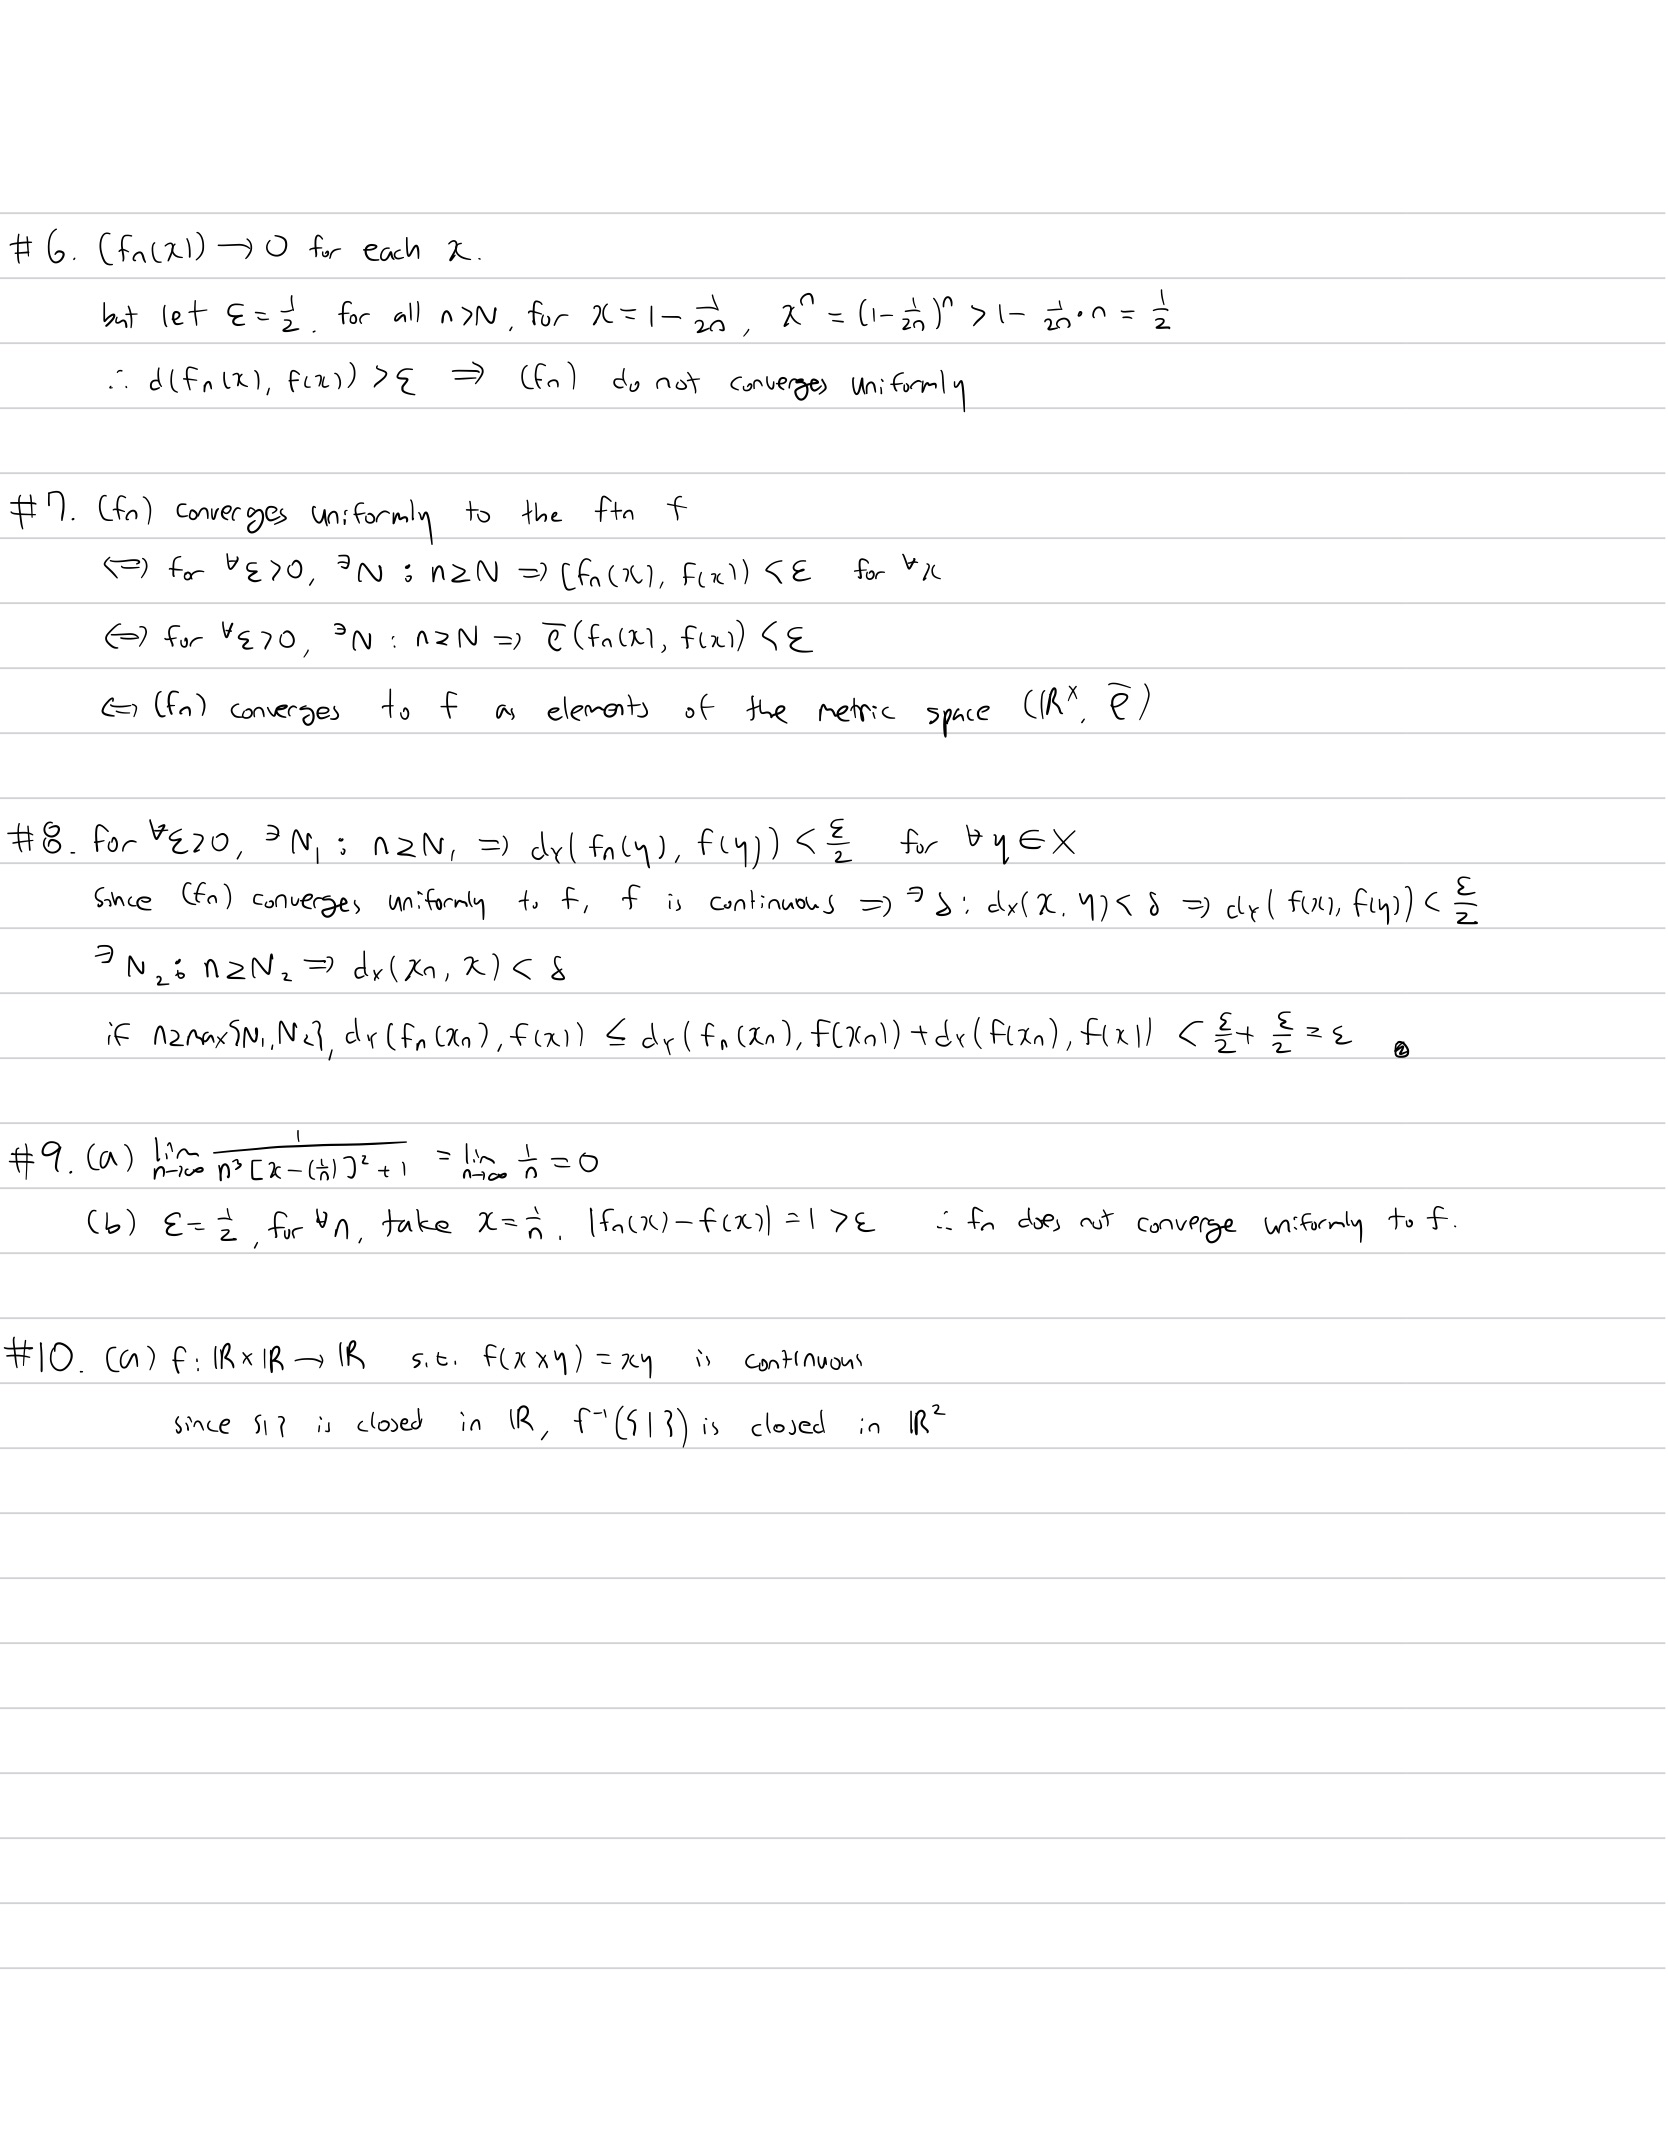 #6. (fn(x)) → 0 for each x.
but let ε = 1/2. for all n>N, for x = 1 - 1/2n, xⁿ = (1 - 1/2n)ⁿ > 1 - 1/2n · n = 1/2
∴ d(fn(x), f(x)) > ε ⇒ (fn) do not converges uniformly
#7. (fn) converges uniformly to the ftn f
⇔ for ∀ε>0, ∃N : n≥N ⇒ [fn(x), f(x)) < ε for ∀x
⇔ for ∀ε>0, ∃N : n≥N ⇒ ρ̅(fn(x), f(x)) < ε
⇔ (fn) converges to f as elements of the metric space (ℝˣ, ρ̅)
#8. for ∀ε>0, ∃N₁ : n≥N₁ ⇒ dY(fn(y), f(y)) < ε/2 for ∀y∈X
Since (fn) converges uniformly to f, f is continuous ⇒ ∃δ : dx(x, y) < δ ⇒ dY(f(x), f(y)) < ε/2
∃N₂ : n≥N₂ ⇒ dx(xn, x) < δ
if n≥max{N₁, N₂}, dY(fn(xn), f(x)) ≤ dY(fn(xn), f(xn)) + dY(f(xn), f(x)) < ε/2 + ε/2 = ε
#9. (a) lim n→∞ 1/(n³[x-(1/n)]²+1) = lim n→∞ 1/n = 0
(b) ε = 1/2, for ∀n, take x = 1/n. |fn(x) - f(x)| = 1 > ε ∴ fn does not converge uniformly to f.
#10. (a) f : ℝ×ℝ → ℝ s.t. f(x×y) = xy is continuous
since {1} is closed in ℝ, f⁻¹({1}) is closed in ℝ²